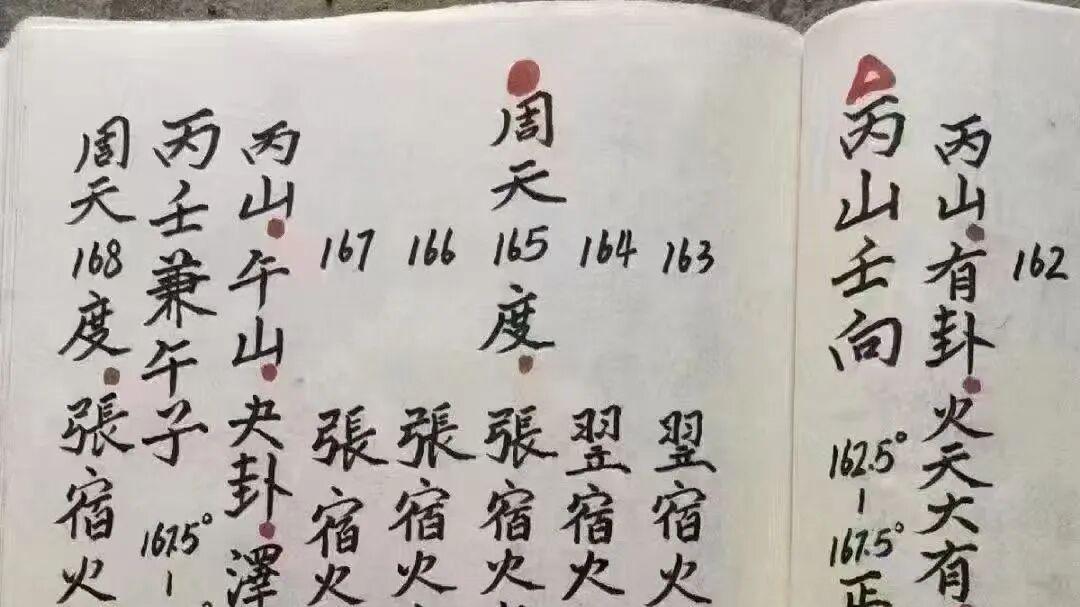 162
丙山·有卦·火天大有
丙山壬向 162.5°-167.5°正
163 翌宿火
164 翌宿火
周天165度·張宿火
166 張宿火
167 張宿火
丙山·午山·夬卦·澤
丙壬兼午子 167.5°-
周天168度·張宿火